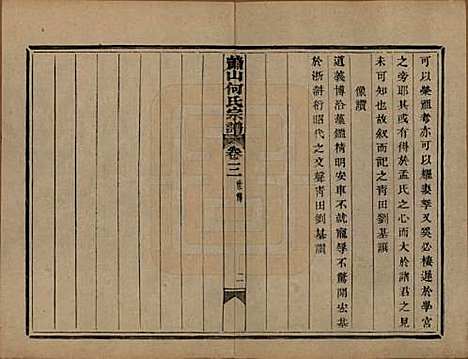 可以榮龍者亦可以耀妻孥又奚必棲遲於學宮
之旁耶其亦有於孟氏之心而大於諸君之見
未可知也故叙而記之青田劉基譔
像讚
道義博洽藻鑑精明安車不就寵辱不驚開宏基
於浙衍昭代之文聲青田劉基讚
蕭山何氏宗譜
卷三
世傳
二